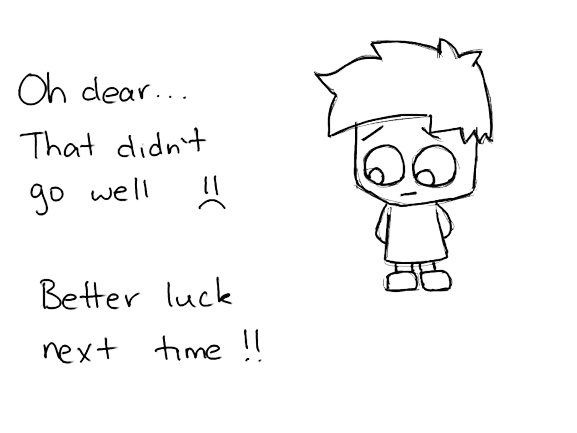 Oh dear...
That didn't
go well !!
Better luck
next time !!